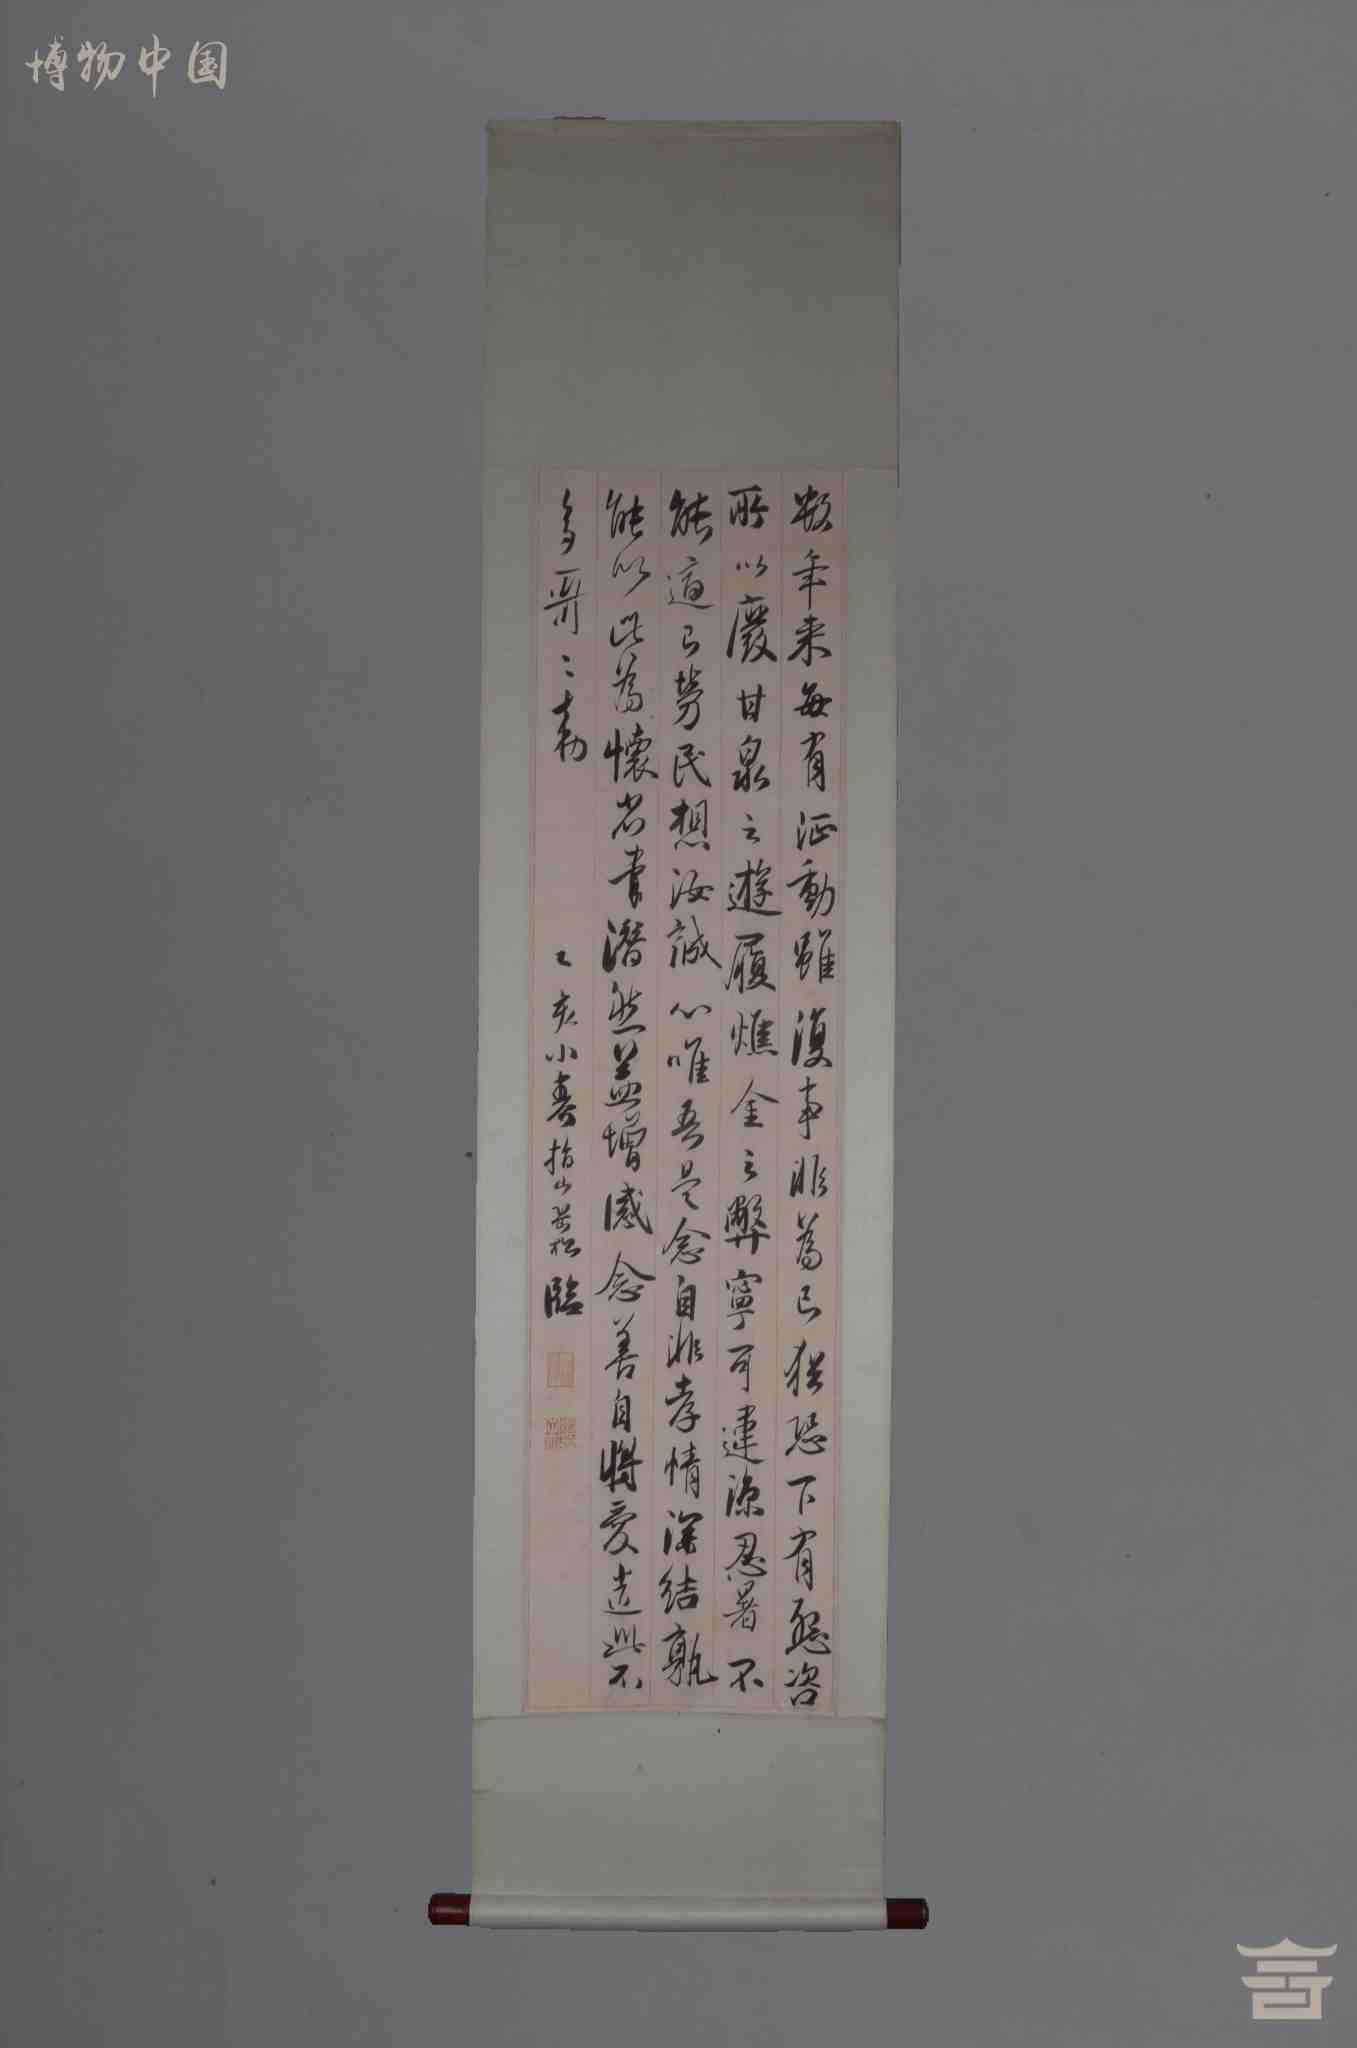 博物中国
数年来每有征動雖復事非為己猶恐下有怨咨
所以廢甘泉之遊履燋金之弊寧可違涼忍暑不
能適己勞民想汝誠心唯吾是念自非孝情深結孰
能以此為懷省書潛然益增感念善自將愛遣此不
多哥哥勅
乙亥小春指山岳松臨